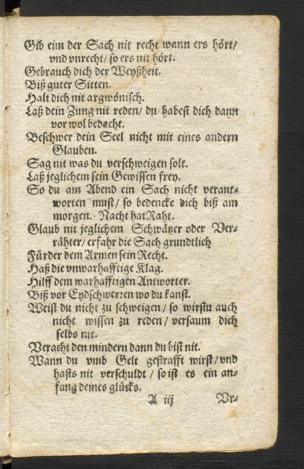 Gib eim der Sach nit recht wann ers hört/
vnd vnrecht/ so ers nit hört.
Gebrauch dich der Weyßheit.
Biß guter Sitten.
Halt dich nit argwönisch.
Laß dein Zung nit reden/ du habest dich dann
vor wol bedacht.
Beschwer dein Seel nicht mit eines andern
Glauben.
Sag nit was du verschweigen solt.
Laß jeglichem sein Gewissen frey.
So du am Abend ein Sach nicht verant-
worten must/ so bedencke dich biß am
morgen. Nacht hat Raht.
Glaub nit jeglichem Schwätzer oder Ver-
rähter/ erfahr die Sach grundtlich
Fürder dem Armen sein Recht.
Haß die vnwarhafftige Klag.
Hilff dem warhafftigen Antworter.
Biß vor Eydschweren wo du kanst.
Weist du nicht zu schweigen/ so wirstu auch
nicht wissen zu reden/ versaum dich
selbs nit.
Veracht den mindern dann du bist nit.
Wann du vmb Gelt gestrafft wirst/ vnd
hasts nit verschuldt/ so ist es ein an-
fang deines glücks.
A iij Vr-